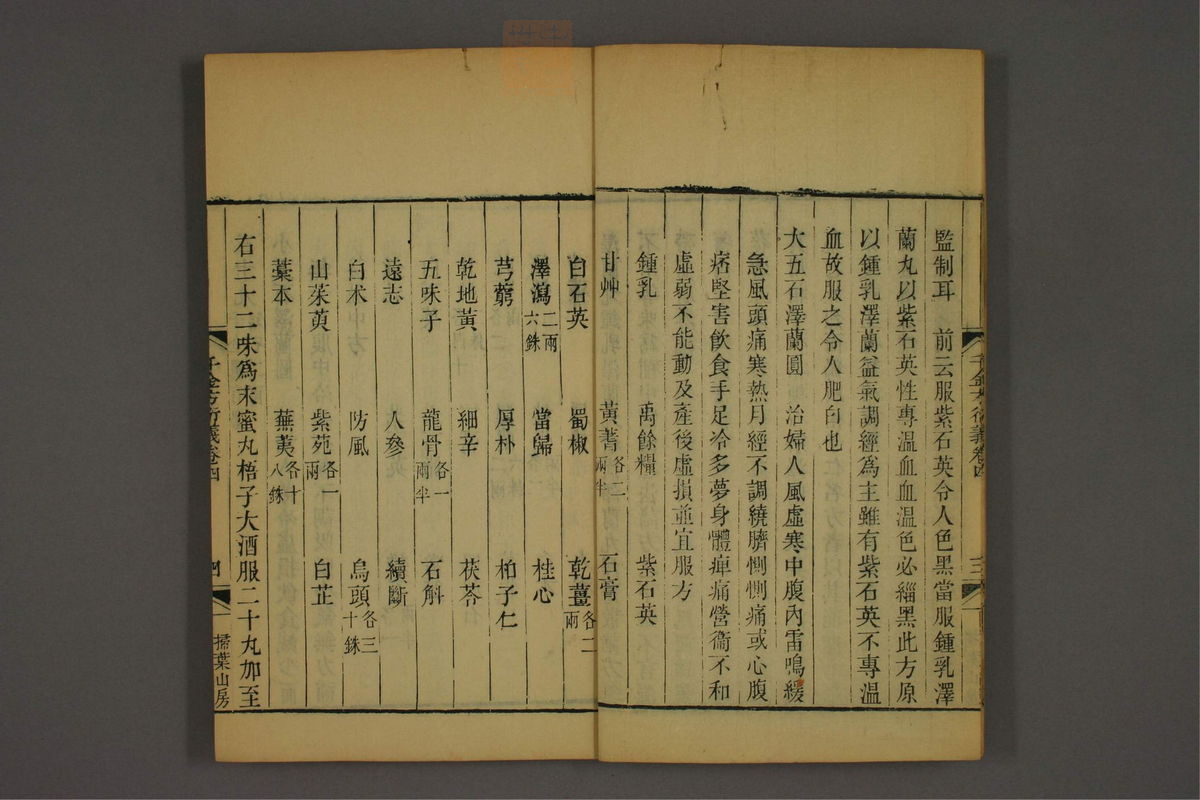 監制耳　前云服紫石英令人色黑當服鍾乳澤
蘭丸以紫石英性專温血血温色必緇黑此方原
以鍾乳澤蘭益氣調經爲主雖有紫石英不專温
血故服之令人肥白也
大五石澤蘭圓　治婦人風虛寒中腹內雷鳴緩
急風頭痛寒熱月經不調繞臍惻惻痛或心腹
痞堅害飲食手足冷多夢身體痺痛營衞不和
虛弱不能動及產後虛損並宜服方
鍾乳　禹餘糧　紫石英
甘艸　黃蓍各二兩半　石膏
白石英　蜀椒　乾薑各二兩
澤瀉二兩六銖　當歸　桂心
芎藭　厚朴　柏子仁
乾地黃　細辛　茯苓
五味子　龍骨各一兩半　石斛
遠志　人參　續斷
白术　防風　烏頭各三十銖
山茱萸　紫苑各一兩　白芷
藁本　蕪荑各十八銖
右三十二味爲末蜜丸梧子大酒服二十丸加至
千金方衍義卷四
四
掃葉山房